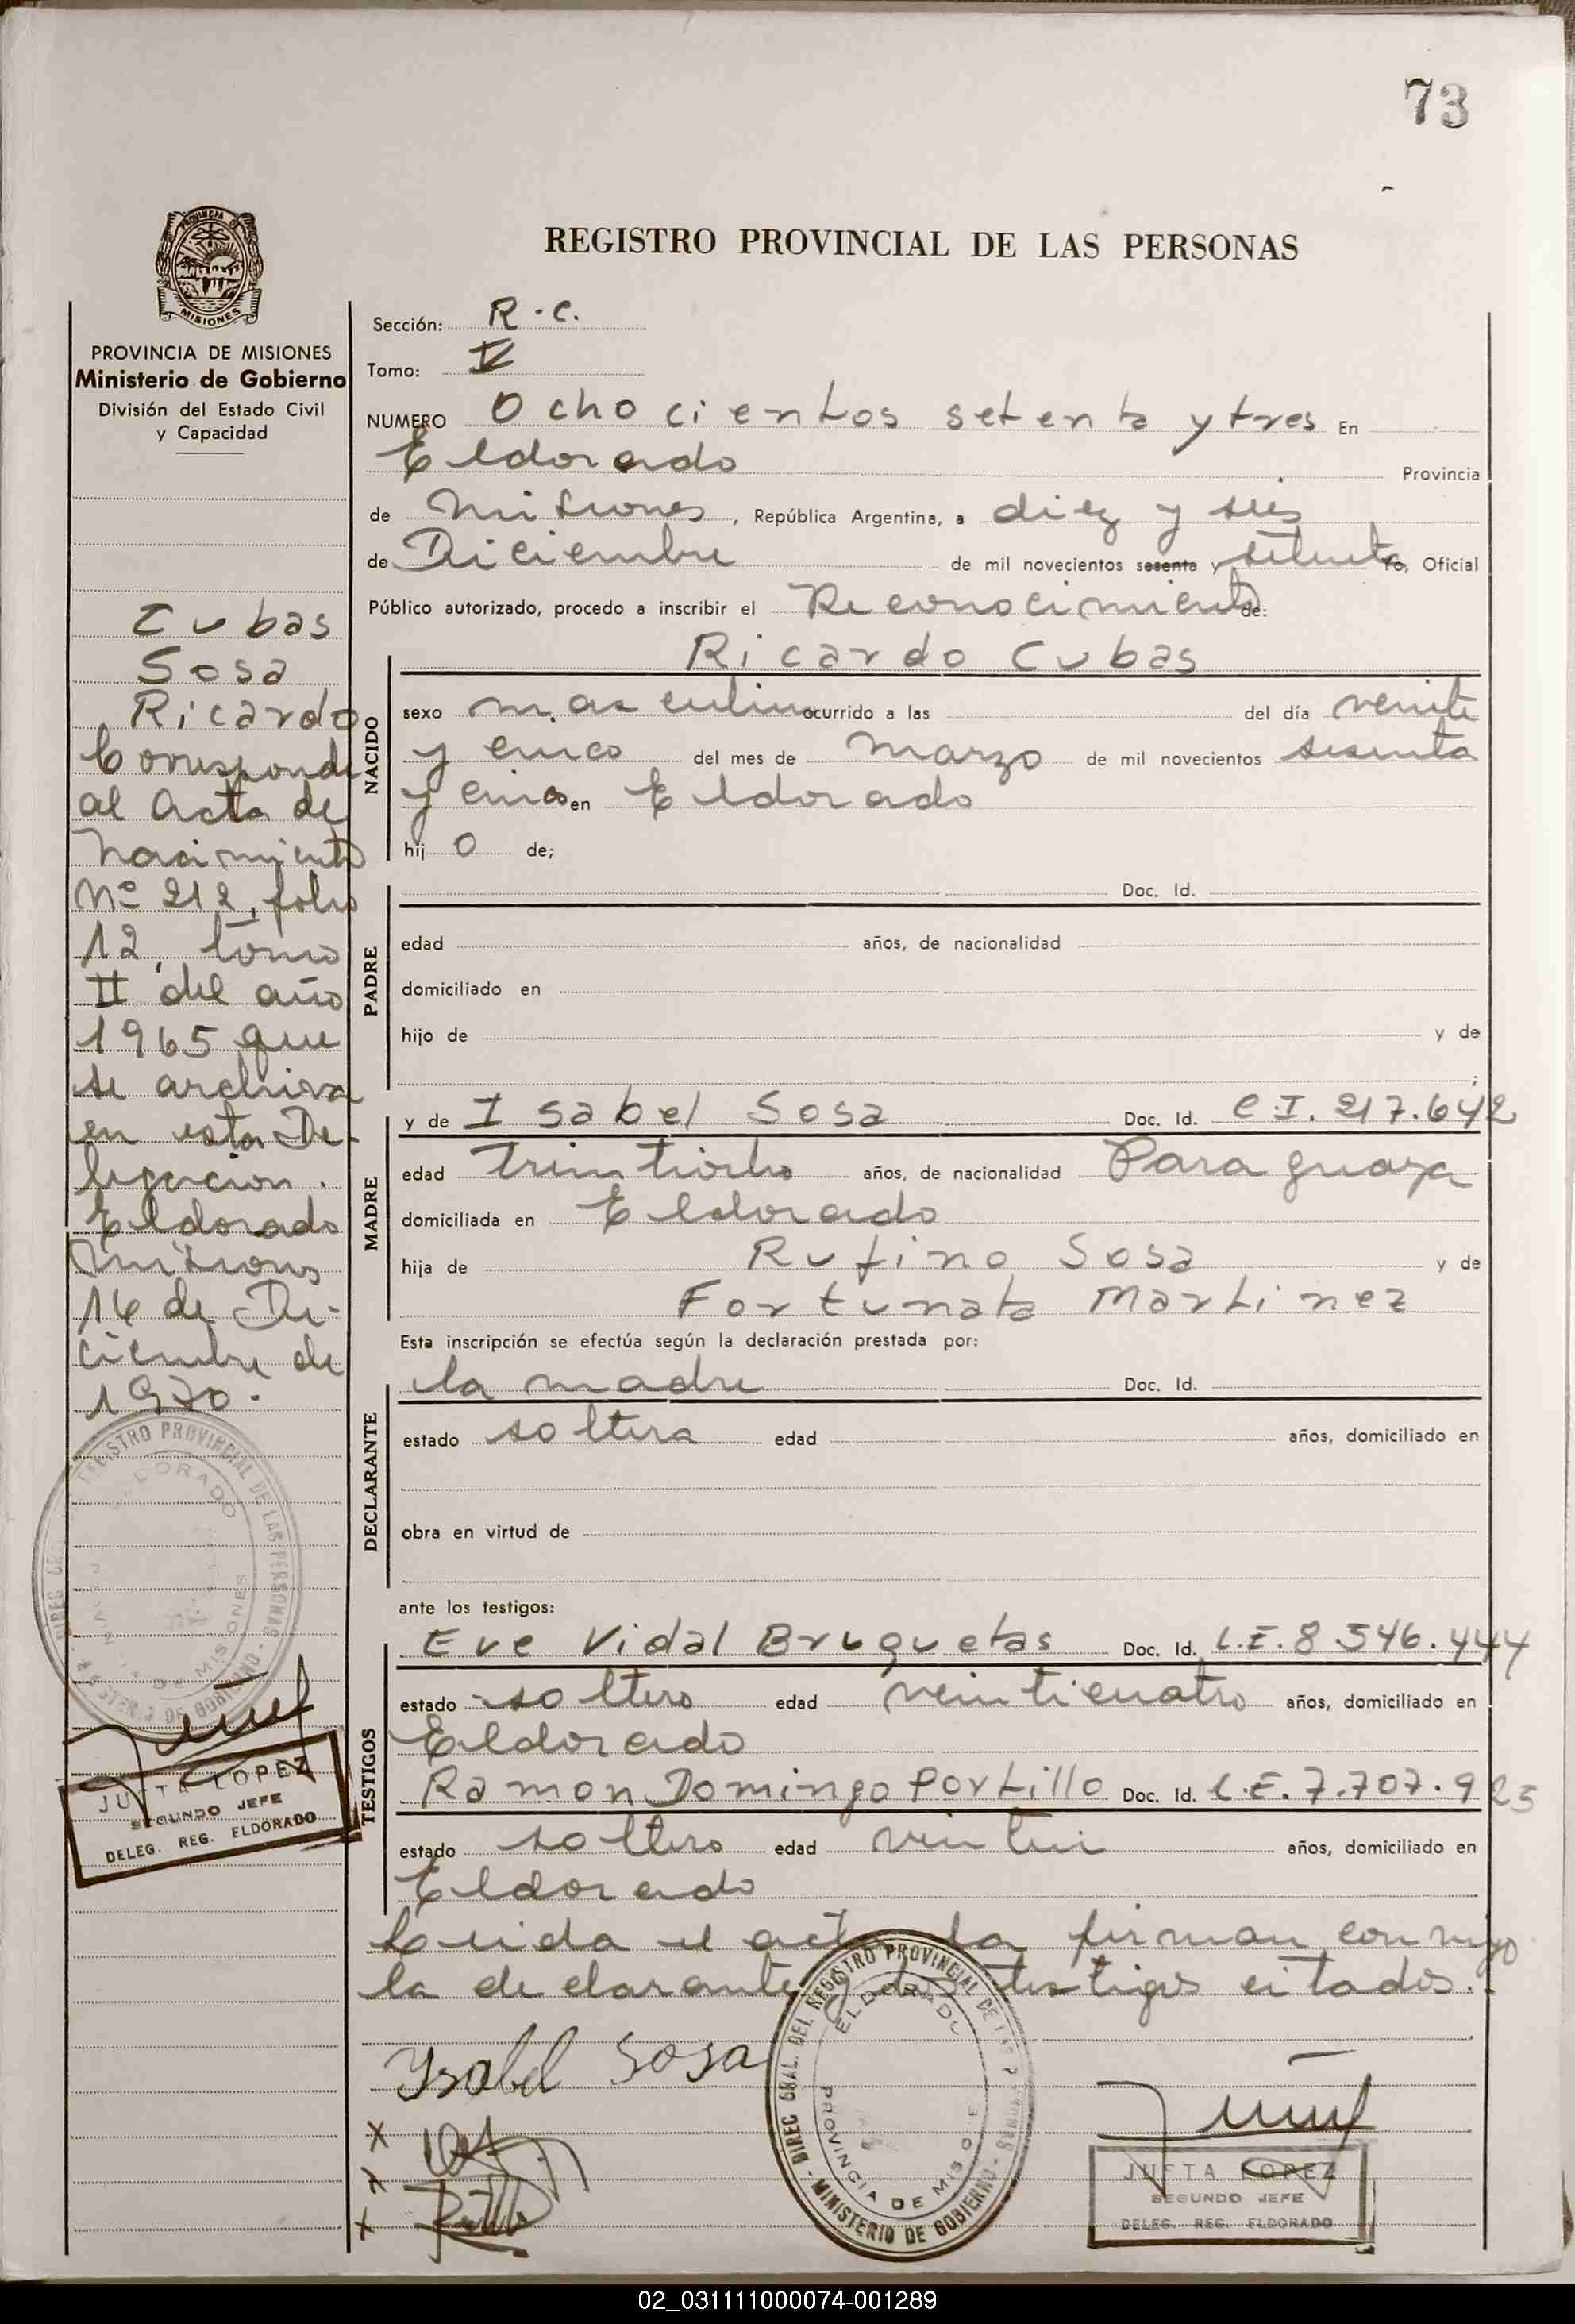 73
REGISTRO PROVINCIAL DE LAS PERSONAS
PROVINCIA
MISIONES
PROVINCIA DE MISIONES
Ministerio de Gobierno
División del Estado Civil
y Capacidad
Cubas
Sosa
Ricardo
Corresponde
al Acta de
Nacimiento
Nº 212, folio
12, tomo
II del año
1965 que
se archiva
en esta De-
legacion.
Eldorado
Misiones
16 de Di-
ciembre de
1970.-
JUSTA LOPEZ
SEGUNDO JEFE
DELEG. REG. ELDORADO
Sección: R.C.
Tomo: V
NUMERO Ochocientos setenta y tres En
Eldorado Provincia
de Misiones, República Argentina, a diez y seis
de Diciembre de mil novecientos sesenta y setenta Yo, Oficial
Público autorizado, procedo a inscribir el Reconocimiento de:
Ricardo Cubas
NACIDO
sexo masculino ocurrido a las del día veinte
y cinco del mes de Marzo de mil novecientos sesenta
y cinco en Eldorado
hij o de;
PADRE
Doc. Id.
edad años, de nacionalidad
domiciliado en
hijo de y de
;
MADRE
y de Isabel Sosa Doc. Id. C.I. 217.642
edad treintiocho años, de nacionalidad Paraguaya
domiciliada en Eldorado
hija de Rufino Sosa y de
Fortunata Martinez
Esta inscripción se efectúa según la declaración prestada por:
DECLARANTE
la madre Doc. Id.
estado soltera edad años, domiciliado en
obra en virtud de
ante los testigos:
TESTIGOS
Eve Vidal Bruquetas Doc. Id. L.E. 8.546.444
estado soltero edad veinticuatro años, domiciliado en
Eldorado
Ramon Domingo Portillo Doc. Id. L.E. 7.707.925
estado soltero edad años, domiciliado en
Eldorado
Leida el acta la firman conmigo
la declarante y los testigos citados.-
Ysabel Sosa
DIREC GRAL. DEL REGISTRO PROVINCIAL DE LAS P
MINISTERIO DE GOBIERNO
ELDORADO
PROVINCIA DE MISIONES
JUSTA LOPEZ
SEGUNDO JEFE
DELEG. REG. ELDORADO
02_031111000074-001289